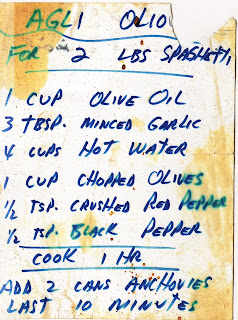 AGLI OLIO
FOR 2 LBS SPAGHETTI
1 CUP OLIVE OIL
3 TBSP. MINCED GARLIC
4 CUPS HOT WATER
1 CUP CHOPPED OLIVES
1/2 TSP. CRUSHED RED PEPPER
1/2 TSP. BLACK PEPPER
COOK 1 HR
ADD 2 CANS ANCHOVIES
LAST 10 MINUTES